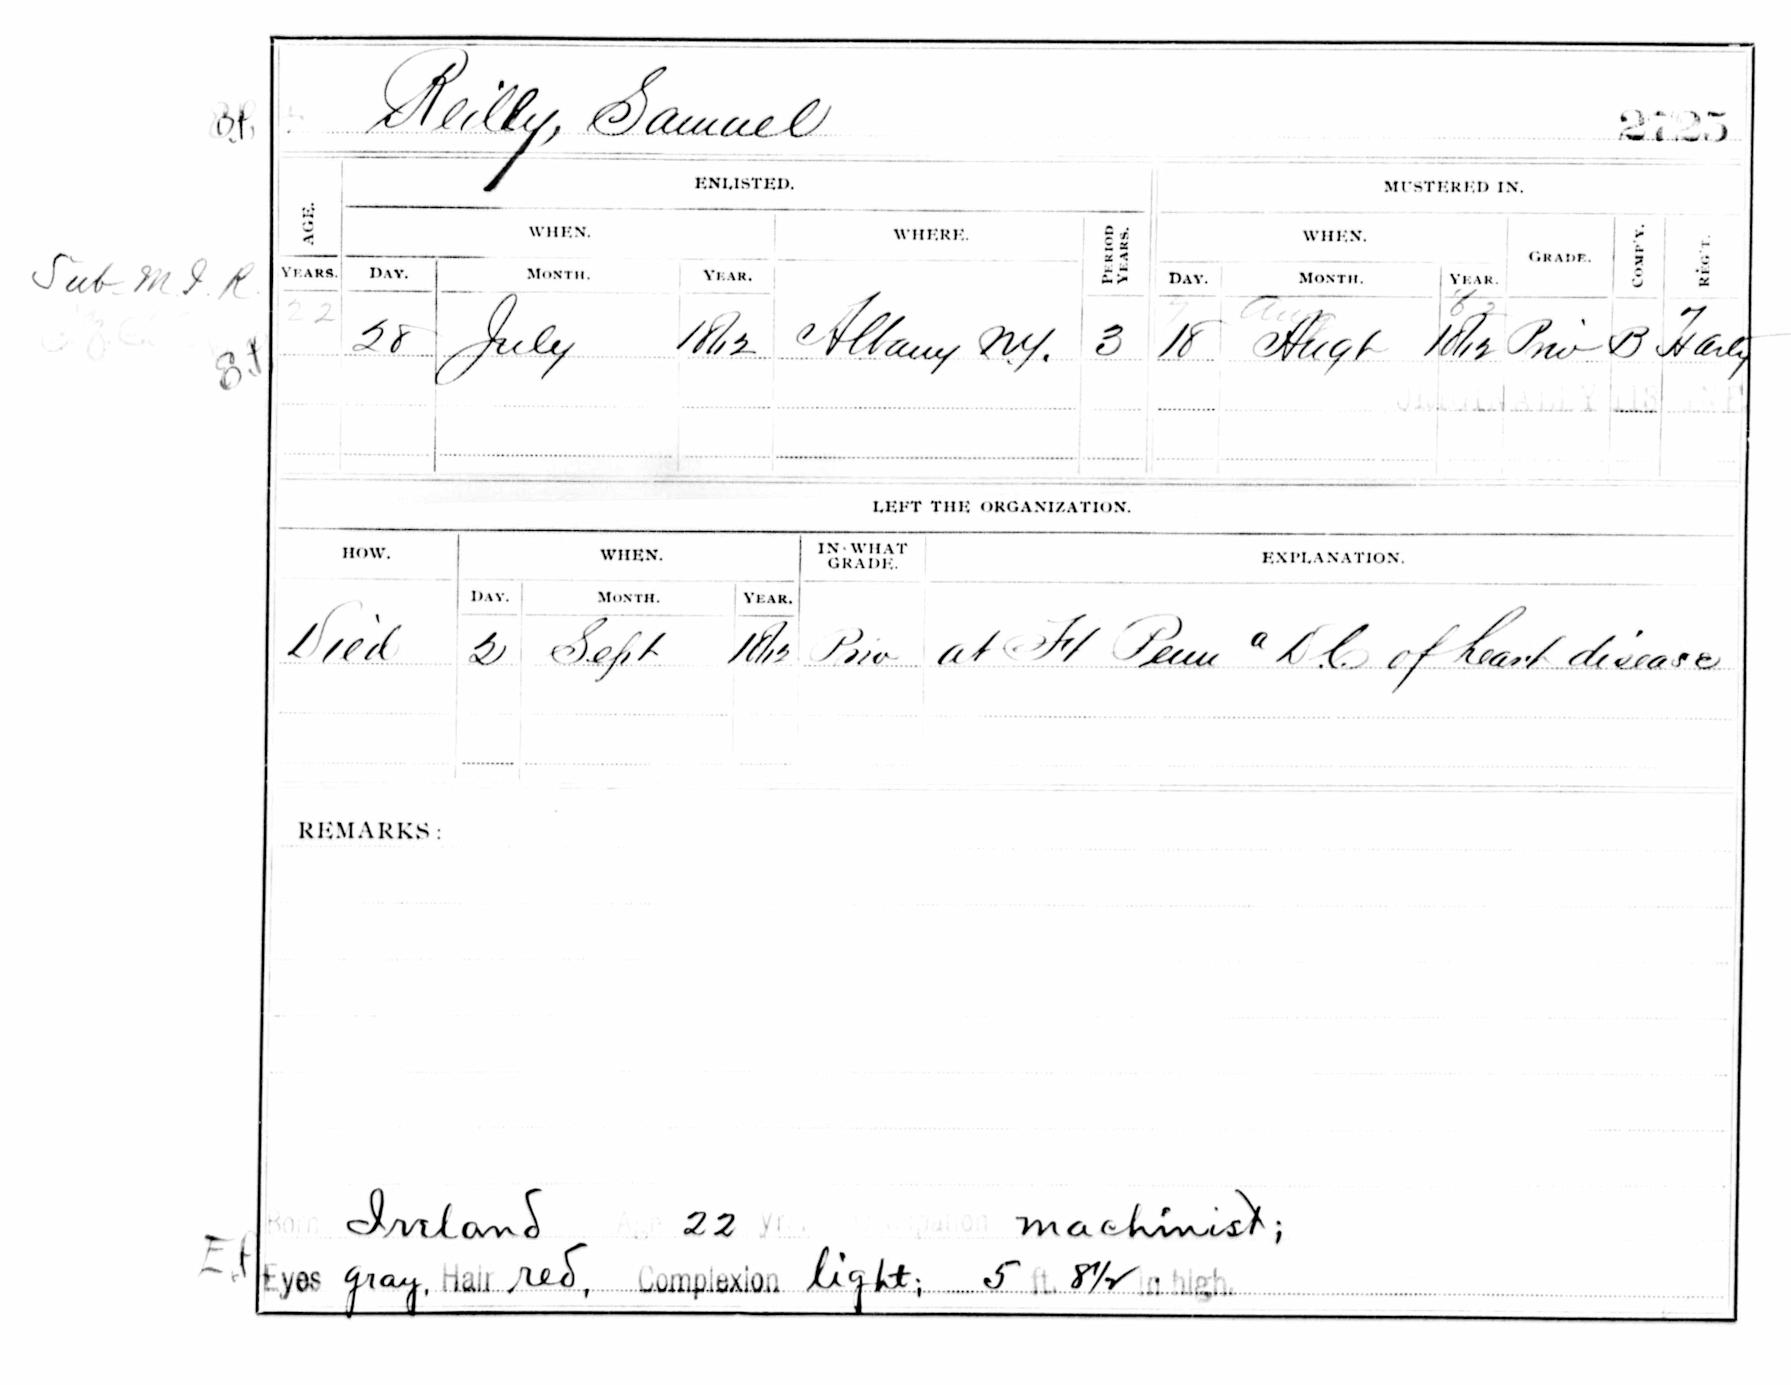 Reilly, Samuel 2725
ENLISTED. MUSTERED IN.
AGE. WHEN. WHERE. PERIOD YEARS. WHEN. GRADE. COMP'Y. REG'T.
Sub. M. I. R. YEARS. DAY. MONTH. YEAR. DAY. MONTH. YEAR.
22 Aug 62 7
28 July 1862 Albany N.Y. 3 18 Augt 1862 Priv B H arty
LEFT THE ORGANIZATION.
HOW. WHEN. IN WHAT GRADE. EXPLANATION.
DAY. MONTH. YEAR.
Died 2 Sept 1862 Priv at Ft Penn a D.C. of heart disease
REMARKS:
Born Ireland Age 22 yrs. Occupation machinist;
Eyes gray, Hair red, Complexion light; 5 ft. 8 1/2 in high.